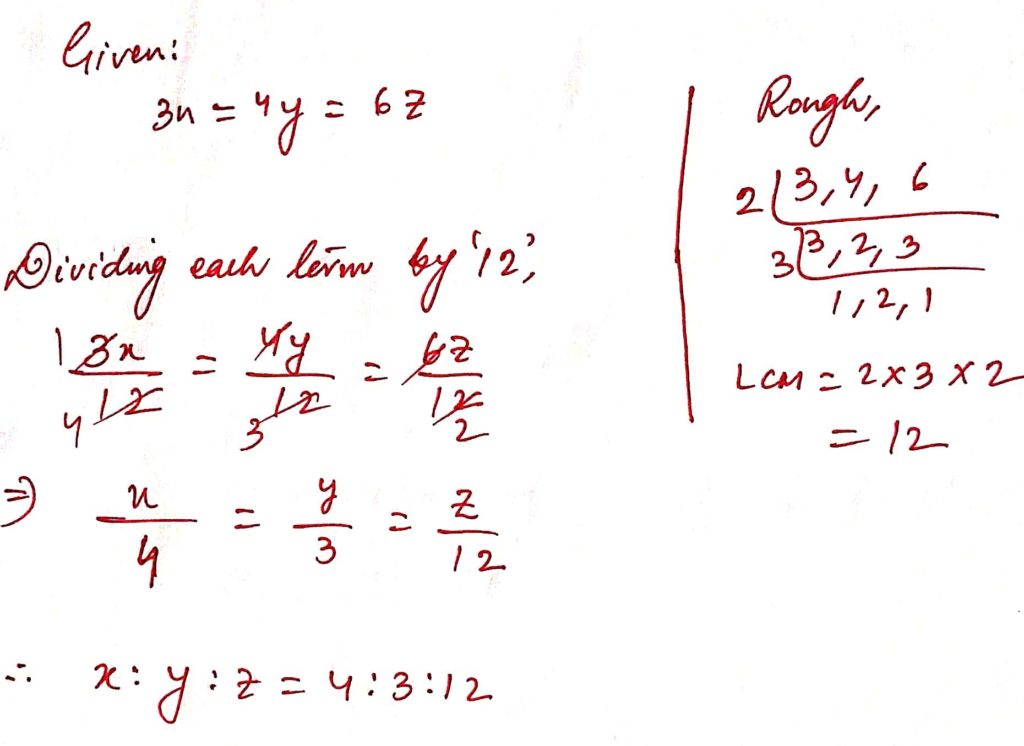 Given:
3x = 4y = 6z
Dividing each term by '12',
1 3x/4 12 = 4y/3 12 = 6z/12 2
⇒ x/4 = y/3 = z/12
∴ x : y : z = 4 : 3 : 12
Rough,
2 | 3, 4, 6
3 | 3, 2, 3
1, 2, 1
LCM = 2 × 3 × 2
= 12